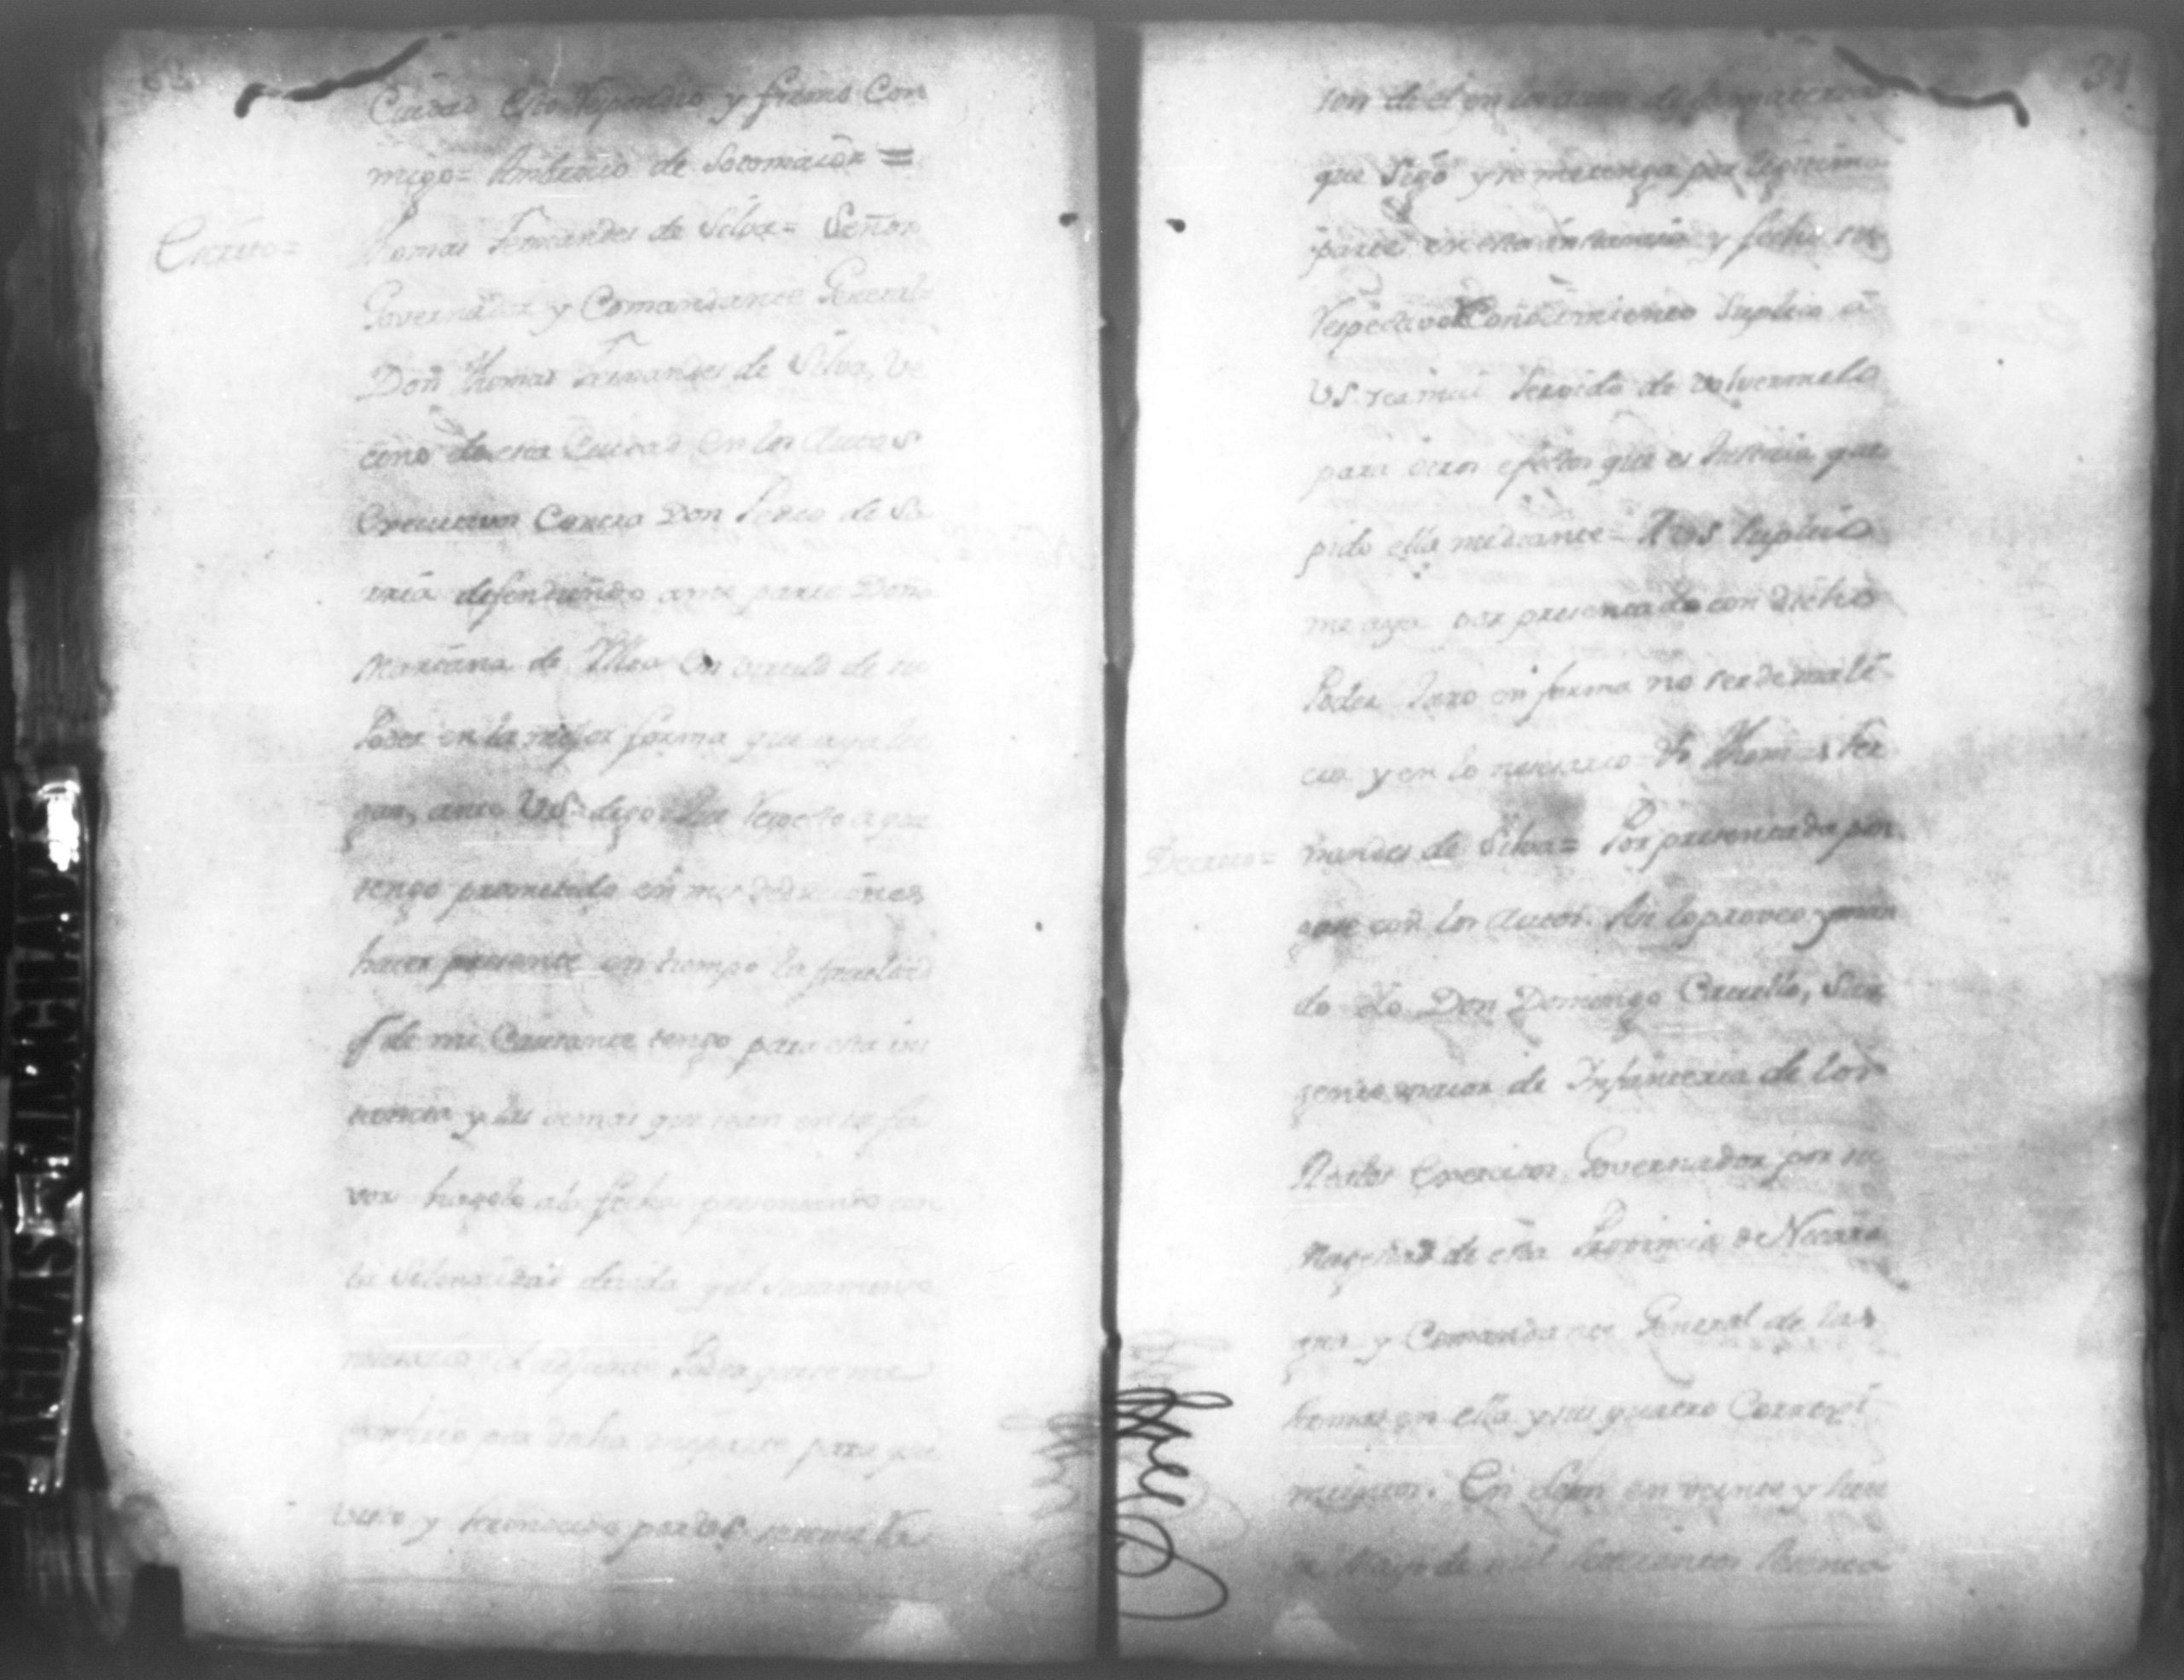 Ciudad Esto Respondio y firmo Con
migo= Ambrocio de Sotomaior =
Escrito=
Thomas Fernandes de Silva= Señor
Governador y Comandante General=
Don Thomas Fernandes de Silva, Ve
cino de esta Ciudad en los Autos
Executivos Contra Don Pedro de Sa
rria defendiendo ante parte Doña
Mariana de Ulloa En virtud de su
Poder en la mejor forma que aya lu
gar, ante VS. digo: Que Respecto a que
tengo prometido en mis
hacer presente en tiempo la facultad
q de mi Causante tengo para esta ins
tancia y las demas que sean en su fa
vor hagolo a la fecha presentando con
la Solemnidad devida y el Juramento
necesario el adjunto Poder que se me
por dicha mi parte para que
visto y reconocido por VS.
31
que sigo y se me tenga por legitima
parte en esta instancia y fecho su
Respectivo Conocimiento Suplico a
VS. sea mui Servido de volvermelo
para otros efectos que es Justicia que
pido ella mediante= A VS Suplico
me aya por presentado con dicho
Poder Juro en forma no ser de mali
cia y en lo necesario= Dn Thomas Fer
Decreto=
nandes de Silva= Por presentada pon
gase con los Autos. Asi lo proveo y man
do Yo Don Domingo Cavello, Sar
gento maior de Infanteria de los
Reales Exercitos, Governador por su
Magestad de esta Provincia de Nicara
gua y Comandante General de las
Armas en ella y sus quatro Corregi
mientos. En Leon en veinte y
de mil Setecientos